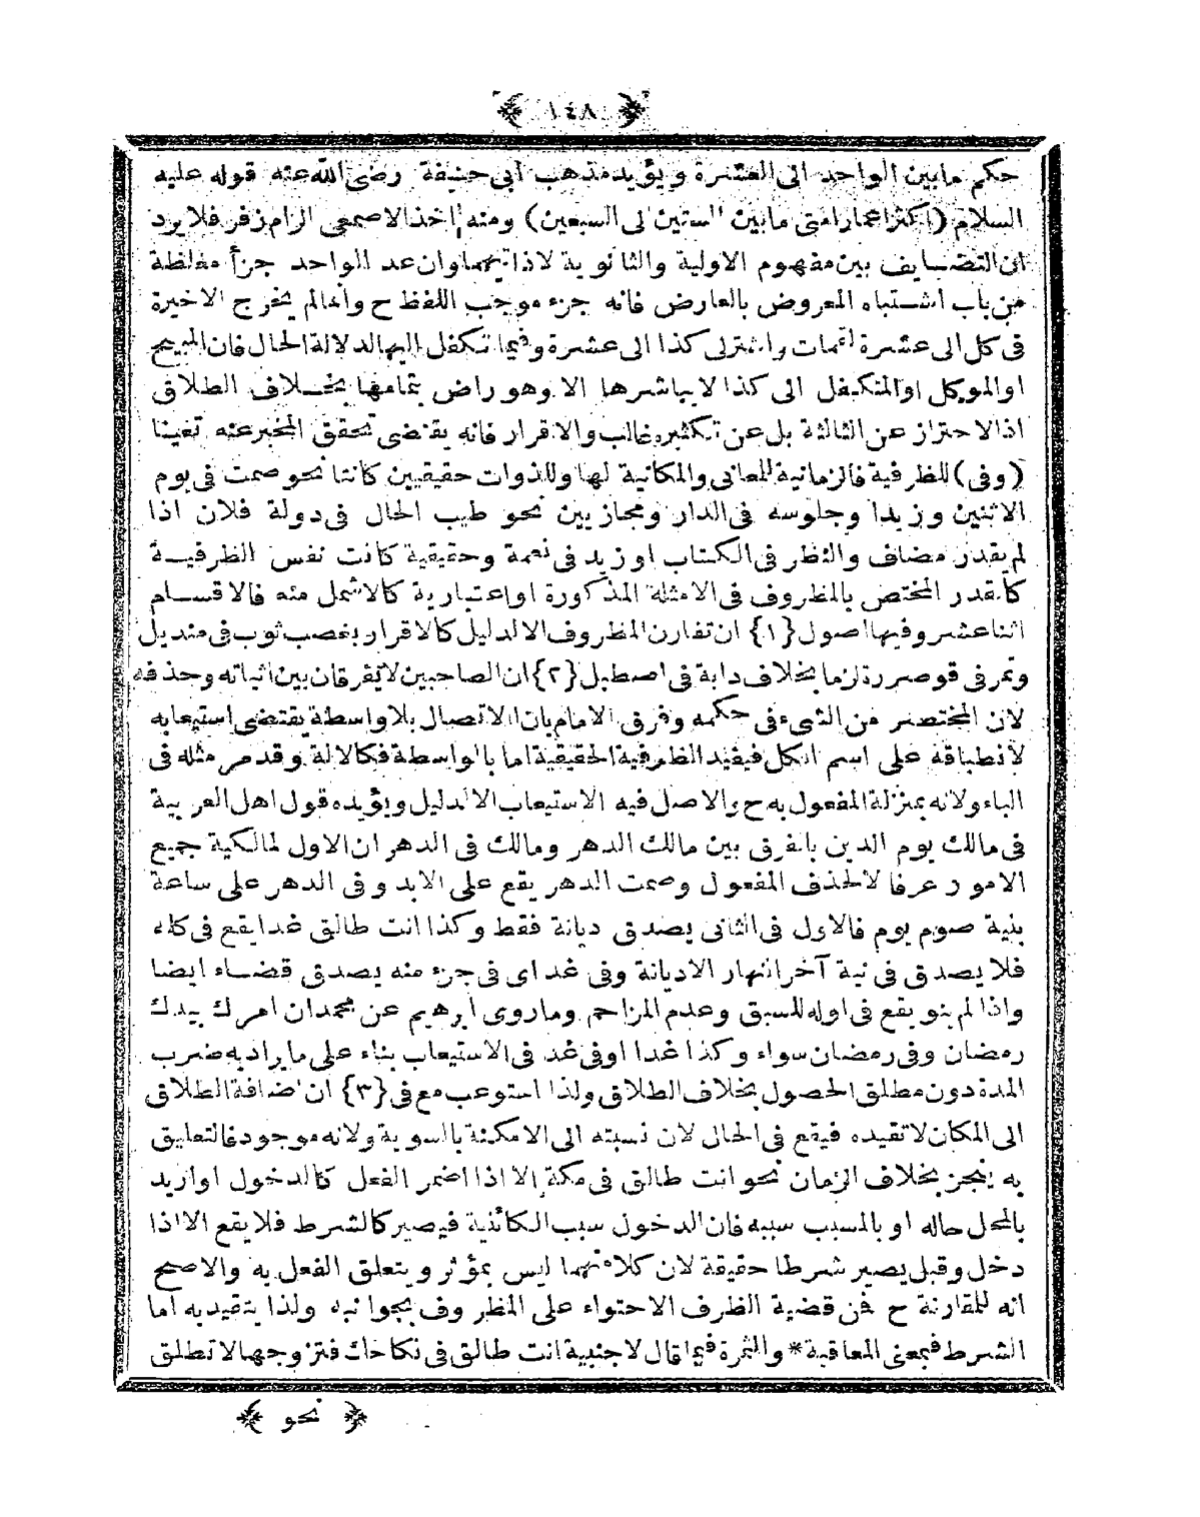 ﴿ ١٤٨ ﴾
حكم مابين الواحد الى العشرة ويؤيد مذهب ابى حنيفة رضى الله عنه قوله عليه
السلام (اكثر اعمار امتى مابين الستين الى السبعين) ومنه اخذ الاصمعى الزام زفر فلا يرد
ان التضايف بين مفهوم الاولية والثانوية لا ذاتيهما وان عد الواحد جزأ مغلطة
من باب اشتباه المعروض بالعارض فانه جزء موجب اللفظ ح وانما لم يخرج الاخيرة
فى كل الى عشرة لقمات واشترلى كذا الى عشرة وفيما تكفل اليها لدلالة الحال فان المبيح
او الموكل او المتكفل الى كذا لا يباشرها الا وهو راض بتمامها بخلاف الطلاق
اذ الاحتراز عن الثالثة بل عن تكثيره غالب والاقرار فانه يقتضى تحقق المخبر عنه تعينا
(وفى) للظرفية فالزمانية للمعانى والمكانية لها وللذوات حقيقيين كانتا نحو صمت فى يوم
الاثنين وزيدا وجلوسه فى الدار ومجازيين نحو طيب الحال فى دولة فلان اذا
لم يقدر مضاف والنظر فى الكتاب او زيد فى نعمة وحقيقية كانت نفس الظرفية
كما تقدر المختص بالمظروف فى الامثلة المذكورة او اعتبارية كالاشمل منه فالاقسام
اثنا عشر وفيها اصول {١} ان تقارن المظروف الا لدليل كالاقرار بغصب ثوب فى منديل
وتمر فى قوصرة لزما بخلاف دابة فى اصطبل {٢} ان الصاحبين لا يفرقان بين اثباته وحذفه
لان المختصر من الشىء فى حكمه وفرق الامام بان الاتصال بلا واسطة يقتضى استيعابه
لانطباقه على اسم الكل فيفيد الظرفية الحقيقية اما بالواسطة فكالآلة وقد مر مثله فى
الباء ولانه بمنزلة المفعول به ح والاصل فيه الاستيعاب الا لدليل ويؤيده قول اهل العربية
فى مالك يوم الدين بالفرق بين مالك الدهر ومالك فى الدهر ان الاول لمالكية جميع
الامور عرفا لا لحذف المفعول وصمت الدهر يقع على الابد وفى الدهر على ساعة
بنية صوم يوم فالاول فى الثانى يصدق ديانة فقط وكذا انت طالق غدا يقع فى كله
فلا يصدق فى نية آخر النهار الا ديانة وفى غد اى فى جزء منه يصدق قضاء ايضا
واذا لم ينو يقع فى اوله للسبق وعدم المزاحم وما روى ابرهيم عن محمد ان امرك بيدك
رمضان وفى رمضان سواء وكذا غدا او فى غد فى الاستيعاب بناء على ما يراد به ضرب
المدة دون مطلق الحصول بخلاف الطلاق ولذا استوعب مع فى {٣} ان اضافة الطلاق
الى المكان لا تقيده فيقع فى الحال لان نسبته الى الامكنة بالسوية ولانه موجود فالتعليق
به ينجز بخلاف الزمان نحو انت طالق فى مكة الا اذا اضمر الفعل كالدخول او اريد
بالمحل حاله او بالمسبب سببه فان الدخول سبب الكائنية فيصير كالشرط فلا يقع الا اذا
دخل وقيل يصير شرطا حقيقة لان كلا منهما ليس بمؤثر ويتعلق الفعل به والاصح
انه للمقارنة ح فمن قضية الظرف الاحتواء على المظروف بجوانبه ولذا يتقيد به اما
الشرط فبمعنى المعاقبة* والثمرة فيما قال لاجنبية انت طالق فى نكاحك فتزوجها لا تطلق
﴿ نحو ﴾